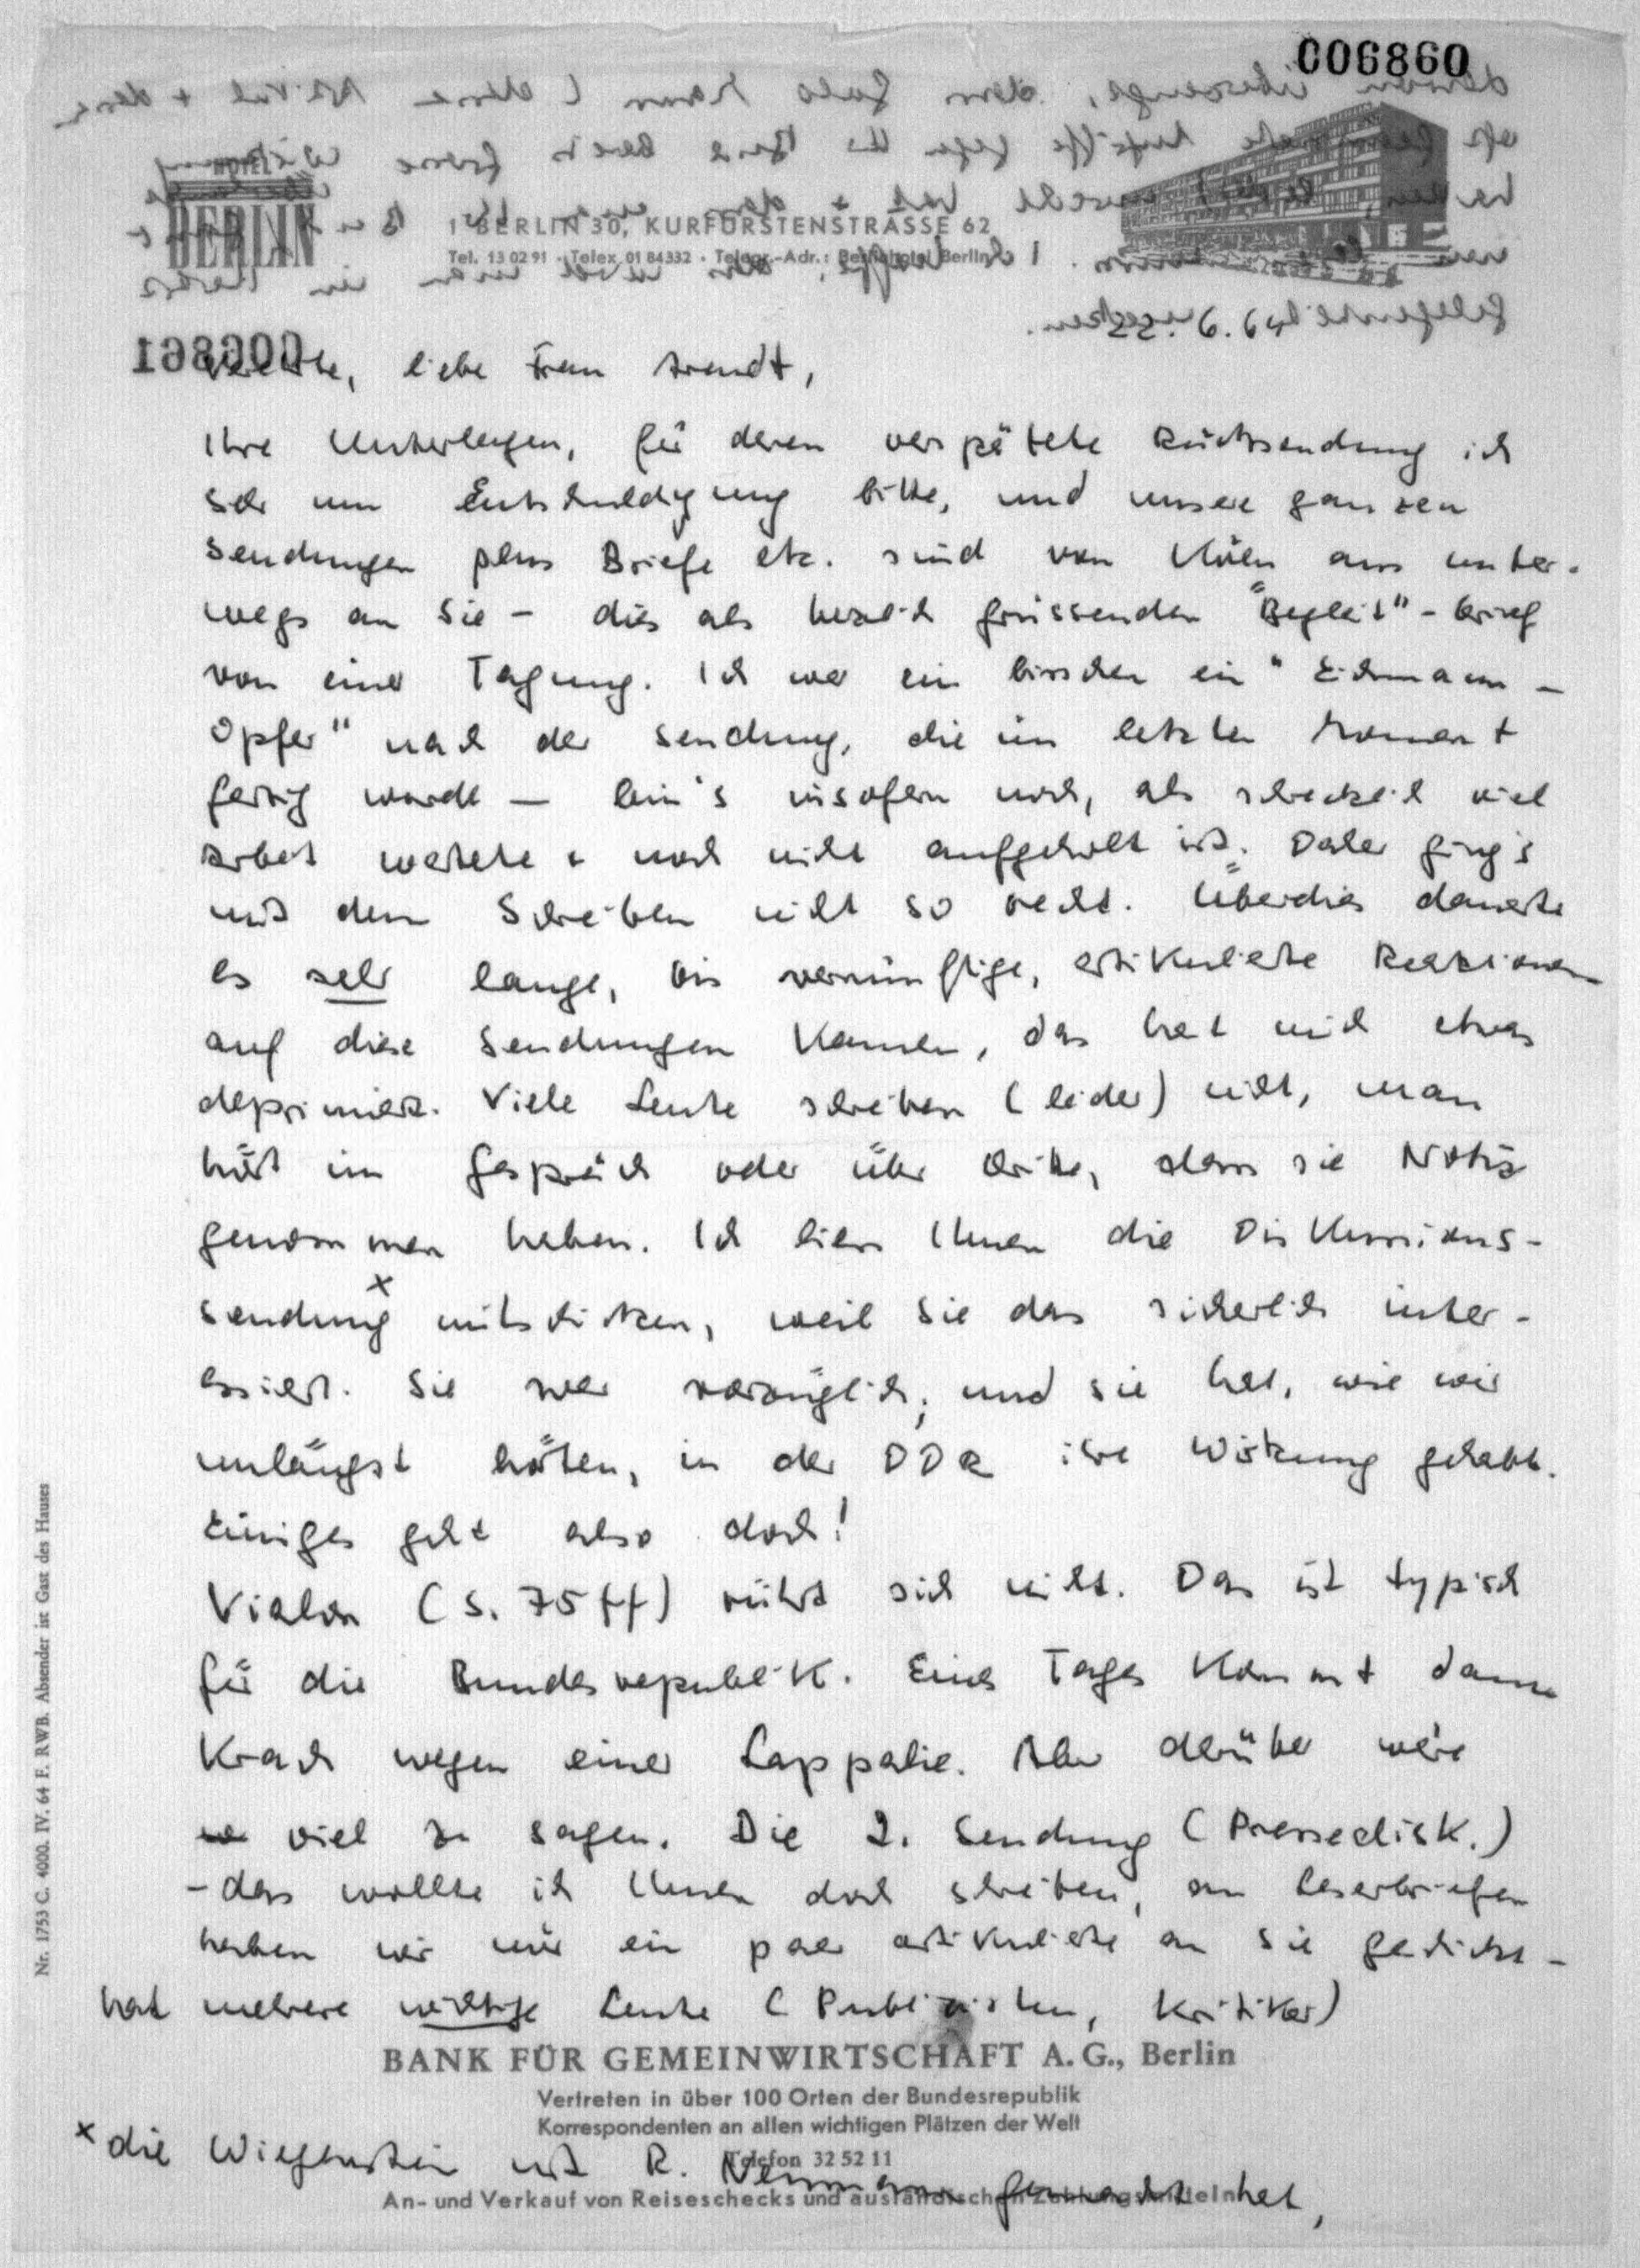 006860
HOTEL
BERLIN
1 BERLIN 30, KURFÜRSTENSTRASSE 62
Tel. 13 02 91 · Telex 01 84332 · Telegr.-Adr.: Berlinhotel Berlin
22. 6. 64
006861
Verehrte, liebe Frau Arendt,
Ihre Unterlagen, für deren verspätete Rücksendung ich
sehr um Entschuldigung bitte, und unsere ganzen
Sendungen plus Briefe etc. sind von Köln aus unter-
wegs an Sie – dies als herzlich grüssenden "Begleit"-brief
von einer Tagung. Ich war ein bisschen ein "Eichmann-
Opfer" nach der Sendung, die im letzten Moment
fertig wurde – bin's insofern noch, als schrecklich viel
Arbeit wartete + noch nicht aufgeholt ist. Daher ging's
mit dem Schreiben nicht so recht. Überdies dauerte
es sehr lange, bis vernünftige, artikulierte Reaktionen
auf diese Sendungen kamen, das hat mich etwas
deprimiert. Viele Leute schreiben (leider) nicht, man
hört im Gespräch oder über Dritte, dass sie Notiz
genommen haben. Ich liess Ihnen die Diskussions-
sendung x mitschicken, weil Sie das sicherlich inter-
essiert. Sie war vorzüglich; und sie hat, wie wir
unlängst hörten, in der DDR ihre Wirkung gehabt.
Einiges geht also doch!
Vialon (S. 75 ff) rührt sich nicht. Das ist typisch
für die Bundesrepublik. Eines Tages kommt dann
Krach wegen einer Lappalie. Aber darüber wäre
viel zu sagen. Die 2. Sendung (Pressedisk.)
– das wollte ich Ihnen doch schreiben, an Leserbriefen
haben wir nur ein paar artikulierte an Sie geschickt –
hat mehrere wichtige Leute (Publizisten, Kritiker)
BANK FÜR GEMEINWIRTSCHAFT A.G., Berlin
Vertreten in über 100 Orten der Bundesrepublik
Korrespondenten an allen wichtigen Plätzen der Welt
Telefon 32 52 11
An- und Verkauf von Reiseschecks und ausländischen Zahlungsmitteln
x die Wiegenstein mit R. Neumann gemacht hat,
Nr. 1753 C. 4000. IV. 64 F. RWB. Absender ist Gast des Hauses